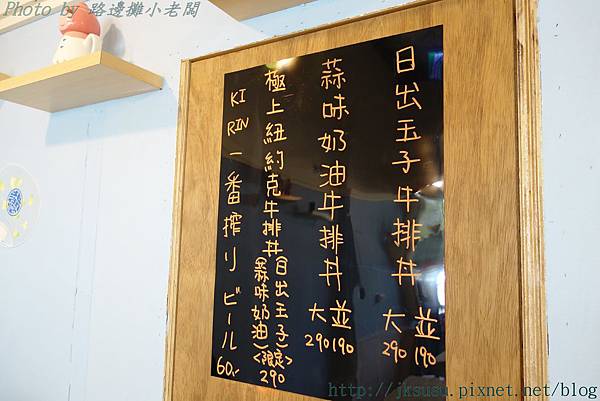 Photo by 路邊攤小老闆
日出玉子牛排丼
並 190
大 290
蒜味奶油牛排丼
並 190
大 290
極上紐約克牛排丼
(日出玉子)
(蒜味奶油)
<限定>
290
KIRIN一番搾りビール
60.-
http://jksusu.pixnet.net/blog